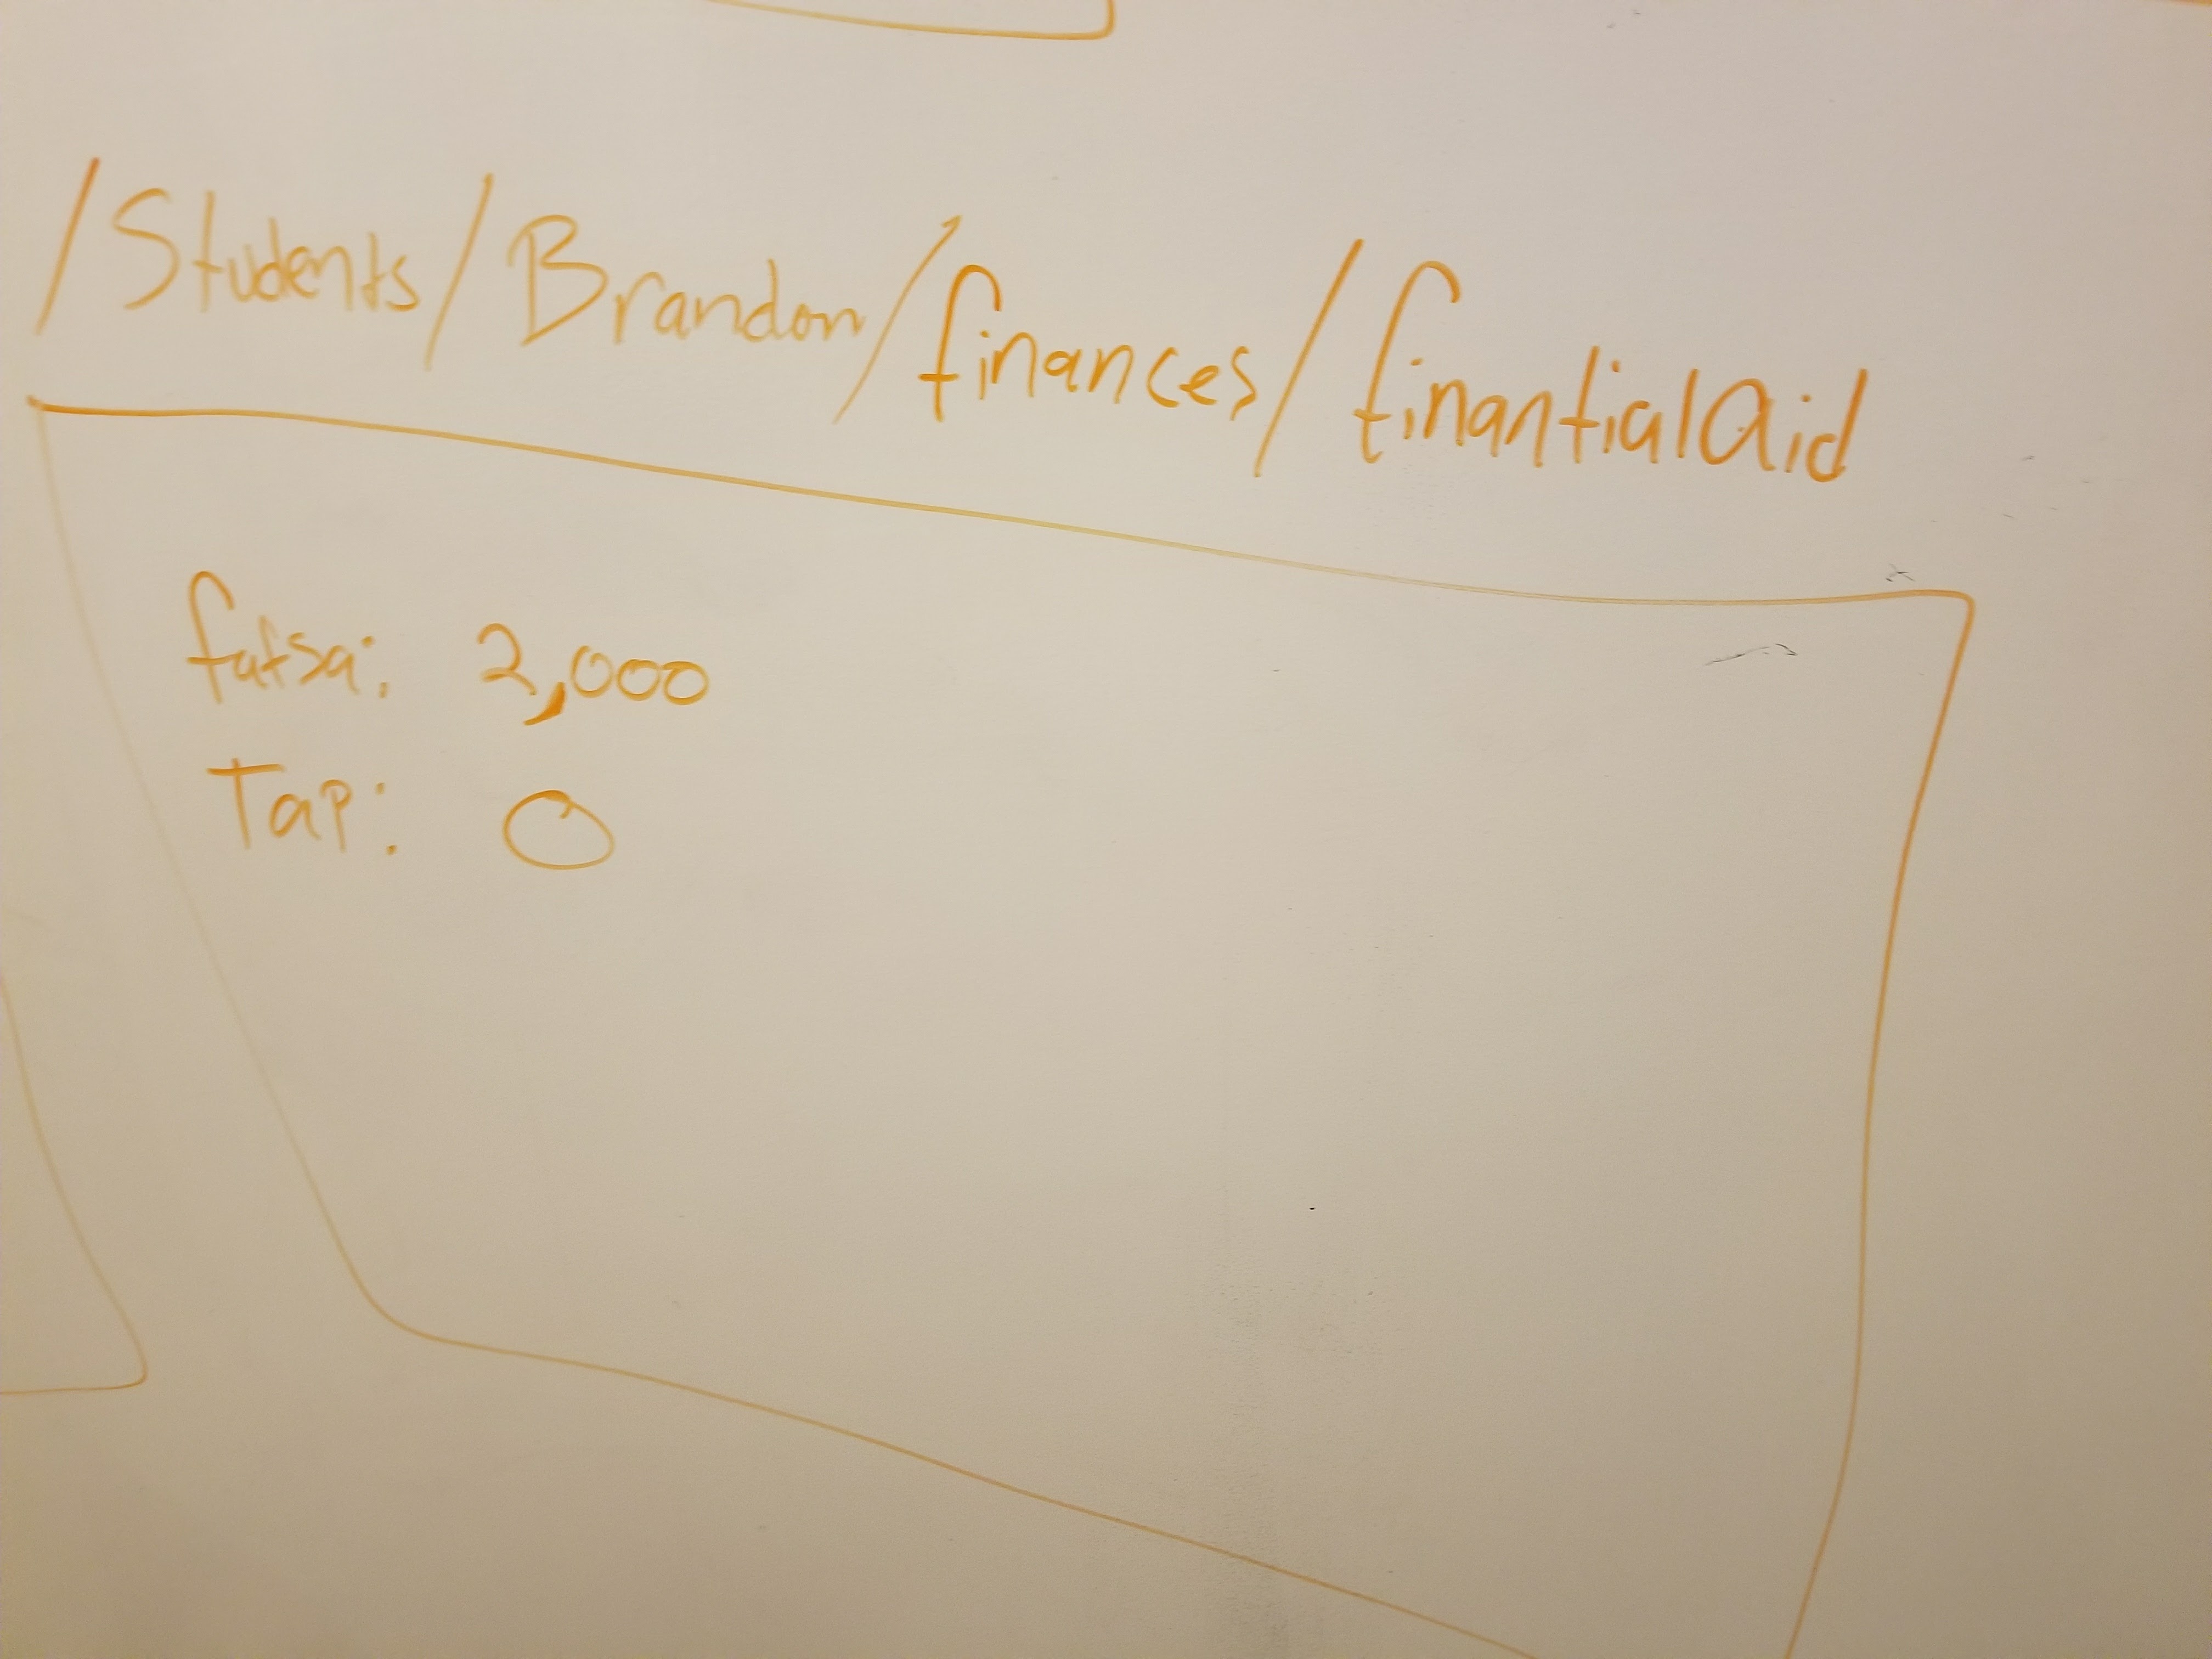 /Students/Brandon/finances/finantialAid
fafsa: 2,000
Tap: 0